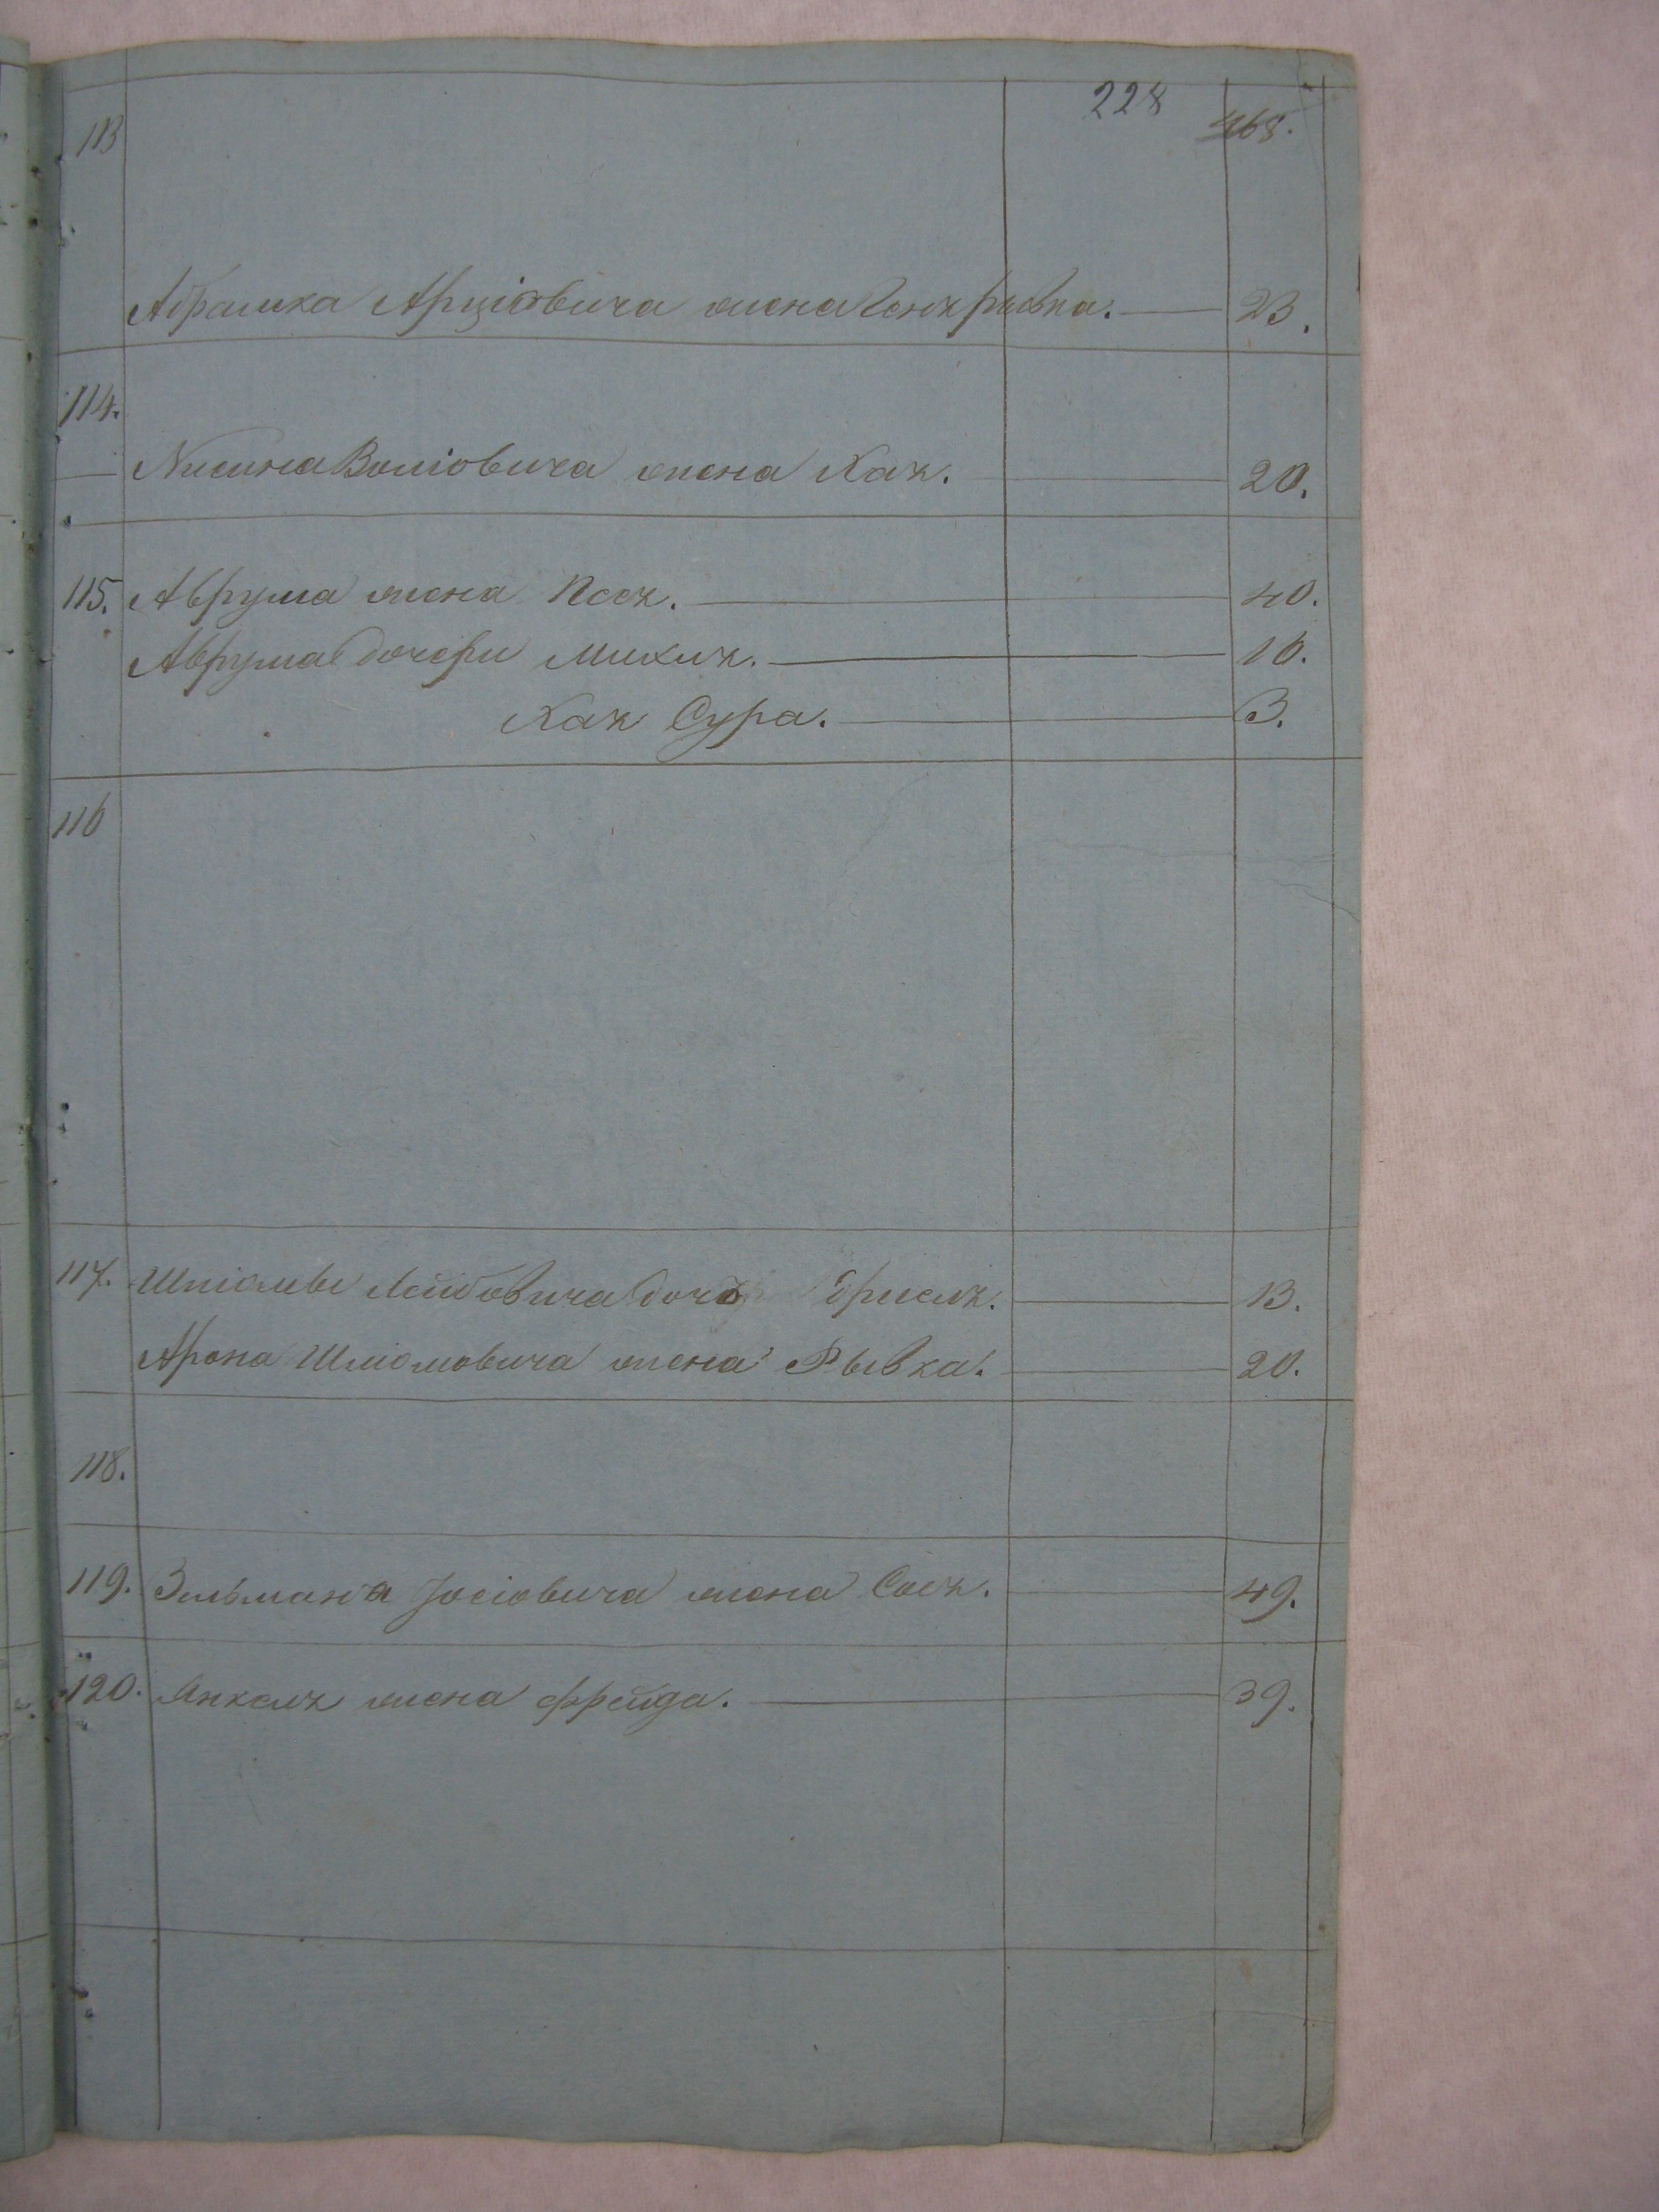 228
468.
113
Абрамка Арціовича жена Генѧ рывка. 23.
114.
Нисина Волiовича жена Хаѧ. 20.
115. Аврума жена Песѧ. 40.
Аврума дочери Михлѧ. 10.
Хаѧ Сура. 3.
116
117. Шліомы Лейбовича доч Эриелѧ. 13.
Арона Шліомовича жена Рывка. 20.
118.
119. Зельмана Іосіовича жена Сосѧ. 49.
120. Янкелѧ жена Фрейда. 39.